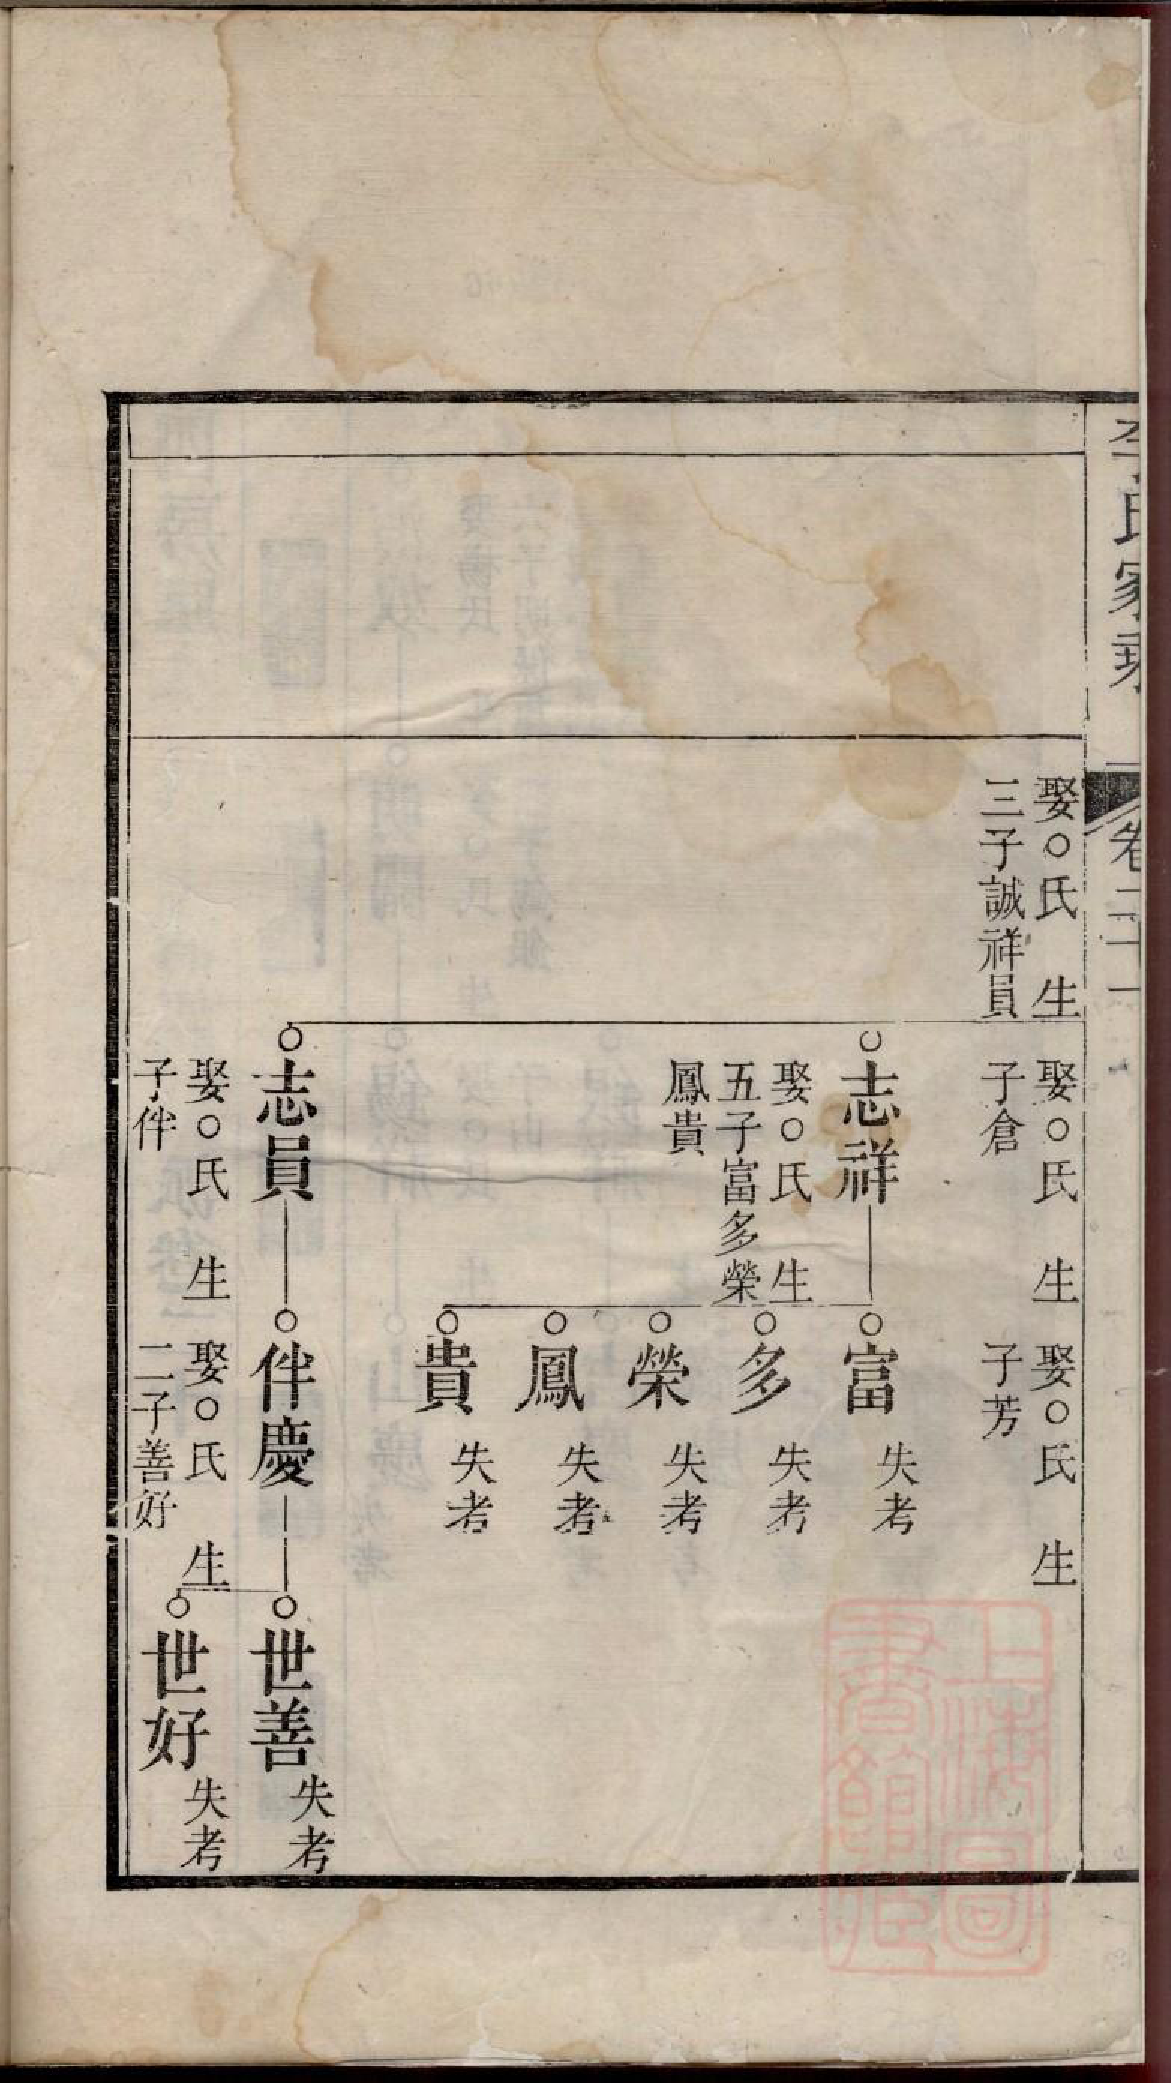 李氏家乘
卷二十一
娶○氏　生
三子誠祥員
娶○氏　生
子倉
娶○氏　生
子芳
○志祥
娶○氏　生
五子富多榮
鳳貴
○富
失考
○多
失考
○榮
失考
○鳳
失考
○貴
失考
○志員
娶○氏　生
子伴
○伴慶
娶○氏　生
二子善好
○世善
失考
○世好
失考
上海圖
書館藏